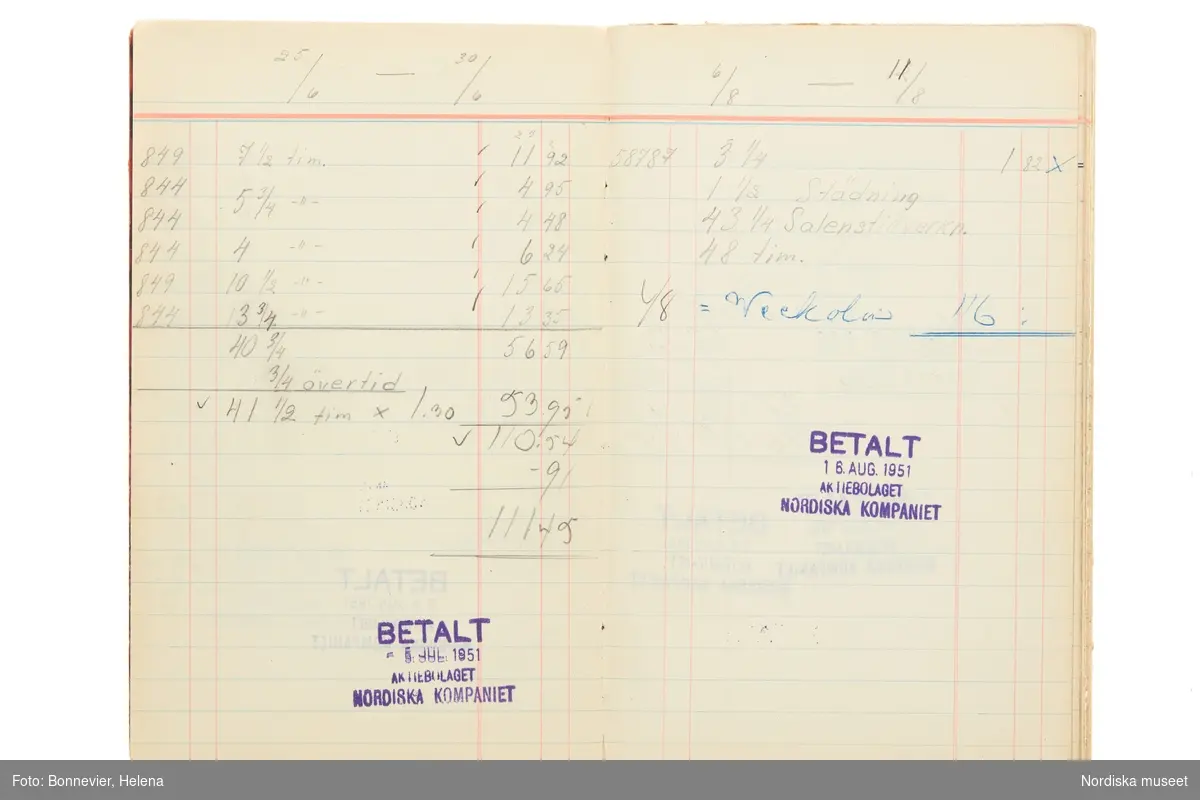 25/6 — 30/6
849 7 1/2 tim. 11 92
844 4 95
5 3/4 -"-
844 4 48
844 4 -"- 6 24
849 10 1/2 -"- 15 65
844 13 3/4 -"- 13 35
40 3/4 56 59
3/4 övertid
✓ 41 1/2 tim x 1.30 53.95
✓ 110.54
-91
111 45
BETALT
5. JUL. 1951
AKTIEBOLAGET
NORDISKA KOMPANIET
6/8 — 11/8
58787 3 1/4 1 82 X =
1 1/2 Städning
43 1/4
48 tim.
= Veckolön 116:
BETALT
16. AUG. 1951
AKTIEBOLAGET
NORDISKA KOMPANIET
Foto: Bonnevier, Helena
Nordiska museet